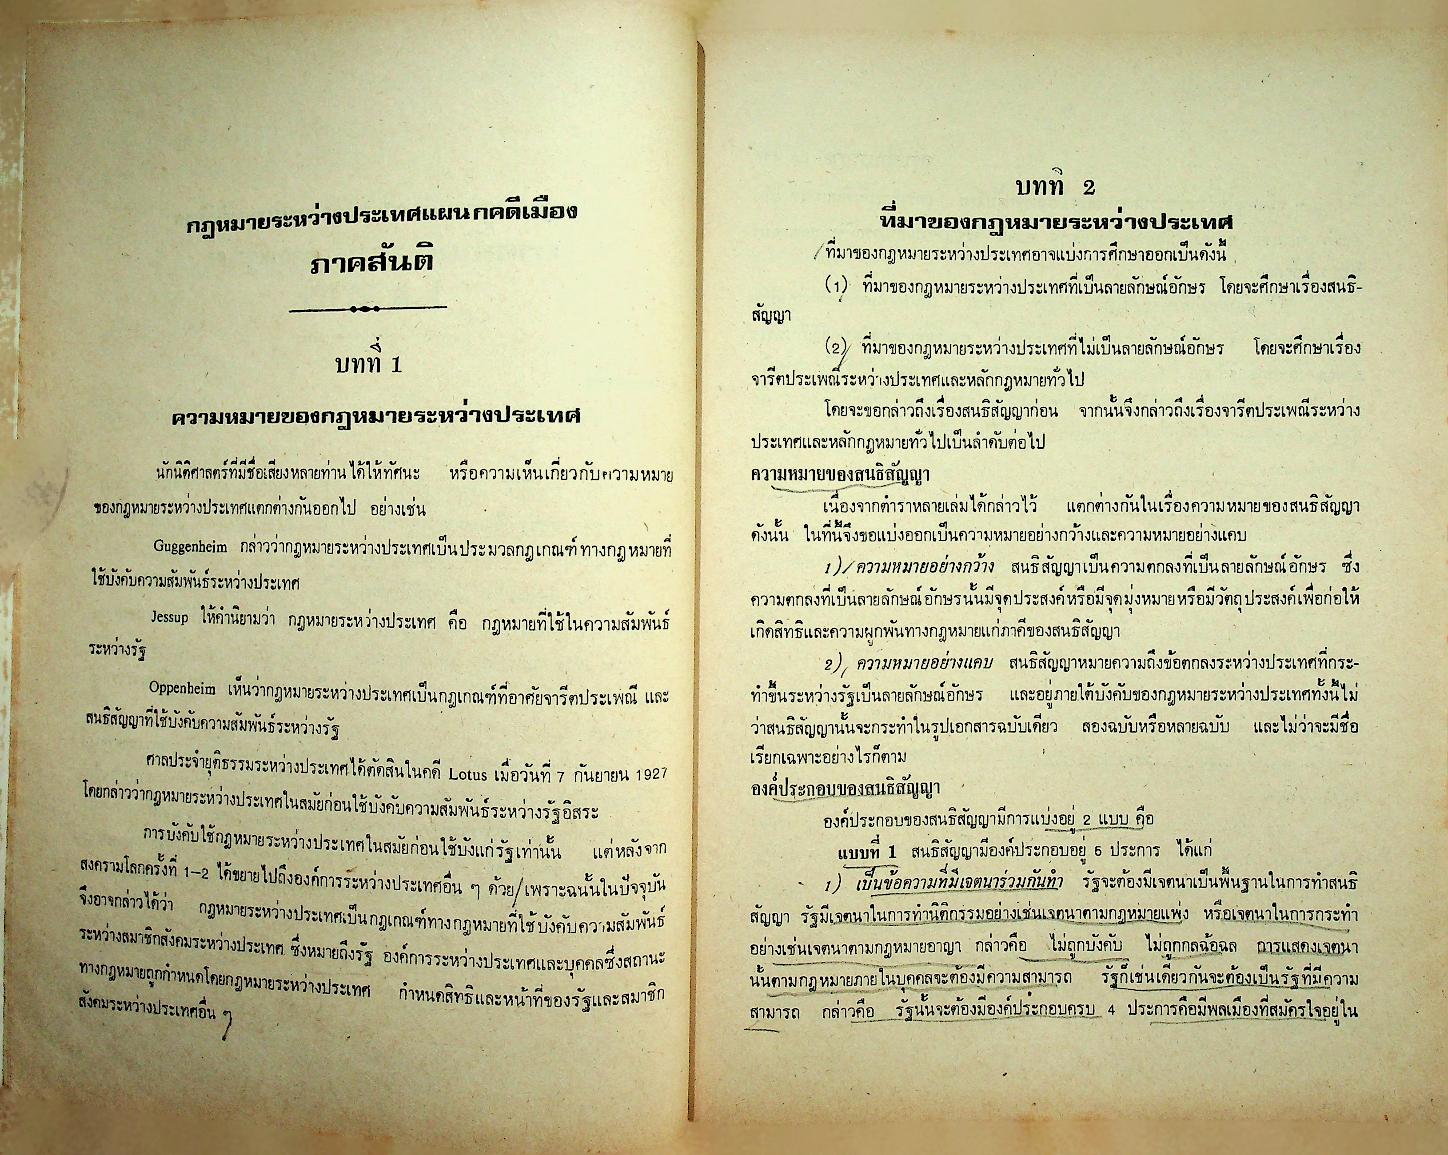 กฎหมายระหว่างประเทศแผนกคดีเมือง
ภาคสันติ
บทที่ 1
ความหมายของกฎหมายระหว่างประเทศ
นักนิติศาสตร์ที่มีชื่อเสียงหลายท่านได้ให้ทัศนะ หรือความเห็นเกี่ยวกับความหมาย
ของกฎหมายระหว่างประเทศแตกต่างกันออกไป อย่างเช่น
Guggenheim กล่าวว่ากฎหมายระหว่างประเทศเป็นประมวลกฎเกณฑ์ทางกฎหมายที่
ใช้บังคับความสัมพันธ์ระหว่างประเทศ
Jessup ให้คำนิยามว่า กฎหมายระหว่างประเทศ คือ กฎหมายที่ใช้ในความสัมพันธ์
ระหว่างรัฐ
Oppenheim เห็นว่ากฎหมายระหว่างประเทศเป็นกฎเกณฑ์ที่อาศัยจารีตประเพณี และ
สนธิสัญญาที่ใช้บังคับความสัมพันธ์ระหว่างรัฐ
ศาลประจำยุติธรรมระหว่างประเทศได้ตัดสินในคดี Lotus เมื่อวันที่ 7 กันยายน 1927
โดยกล่าวว่ากฎหมายระหว่างประเทศในสมัยก่อนใช้บังคับความสัมพันธ์ระหว่างรัฐอิสระ
การบังคับใช้กฎหมายระหว่างประเทศในสมัยก่อนใช้บังแก่รัฐเท่านั้น แต่หลังจาก
สงครามโลกครั้งที่ 1-2 ได้ขยายไปถึงองค์การระหว่างประเทศอื่น ๆ ด้วย เพราะฉนั้นในปัจจุบัน
จึงอาจกล่าวได้ว่า กฎหมายระหว่างประเทศเป็นกฎเกณฑ์ทางกฎหมายที่ใช้บังคับความสัมพันธ์
ระหว่างสมาชิกสังคมระหว่างประเทศ ซึ่งหมายถึงรัฐ องค์การระหว่างประเทศและบุคคลซึ่งสถานะ
ทางกฎหมายถูกกำหนดโดยกฎหมายระหว่างประเทศ กำหนดสิทธิและหน้าที่ของรัฐและสมาชิก
สังคมระหว่างประเทศอื่น ๆ
บทที่ 2
ที่มาของกฎหมายระหว่างประเทศ
ที่มาของกฎหมายระหว่างประเทศอาจแบ่งการศึกษาออกเป็นดังนี้
(1) ที่มาของกฎหมายระหว่างประเทศที่เป็นลายลักษณ์อักษร โดยจะศึกษาเรื่องสนธิ-
สัญญา
(2) ที่มาของกฎหมายระหว่างประเทศที่ไม่เป็นลายลักษณ์อักษร โดยจะศึกษาเรื่อง
จารีตประเพณีระหว่างประเทศและหลักกฎหมายทั่วไป
โดยจะขอกล่าวถึงเรื่องสนธิสัญญาก่อน จากนั้นจึงกล่าวถึงเรื่องจารีตประเพณีระหว่าง
ประเทศและหลักกฎหมายทั่วไปเป็นลำดับต่อไป
ความหมายของสนธิสัญญา
เนื่องจากตำราหลายเล่มได้กล่าวไว้ แตกต่างกันในเรื่องความหมายของสนธิสัญญา
ดังนั้น ในที่นี้จึงขอแบ่งออกเป็นความหมายอย่างกว้างและความหมายอย่างแคบ
1) ความหมายอย่างกว้าง สนธิสัญญาเป็นความตกลงที่เป็นลายลักษณ์อักษร ซึ่ง
ความตกลงที่เป็นลายลักษณ์อักษรนั้นมีจุดประสงค์หรือมีจุดมุ่งหมายหรือมีวัตถุประสงค์เพื่อก่อให้
เกิดสิทธิและความผูกพันทางกฎหมายแก่ภาคีของสนธิสัญญา
2) ความหมายอย่างแคบ สนธิสัญญาหมายความถึงข้อตกลงระหว่างประเทศที่กระ-
ทำขึ้นระหว่างรัฐเป็นลายลักษณ์อักษร และอยู่ภายใต้บังคับของกฎหมายระหว่างประเทศทั้งนี้ไม่
ว่าสนธิสัญญานั้นจะกระทำในรูปเอกสารฉบับเดียว สองฉบับหรือหลายฉบับ และไม่ว่าจะมีชื่อ
เรียกเฉพาะอย่างไรก็ตาม
องค์ประกอบของสนธิสัญญา
องค์ประกอบของสนธิสัญญามีการแบ่งอยู่ 2 แบบ คือ
แบบที่ 1 สนธิสัญญามีองค์ประกอบอยู่ 6 ประการ ได้แก่
1) เป็นข้อความที่มีเจตนาร่วมกันทำ รัฐจะต้องมีเจตนาเป็นพื้นฐานในการทำสนธิ
สัญญา รัฐมีเจตนาในการทำนิติกรรมอย่างเช่นเจตนาตามกฎหมายแพ่ง หรือเจตนาในการกระทำ
อย่างเช่นเจตนาตามกฎหมายอาญา กล่าวคือ ไม่ถูกบังคับ ไม่ถูกกลฉ้อฉล การแสดงเจตนา
นั้นตามกฎหมายภายในบุคคลจะต้องมีความสามารถ รัฐก็เช่นเดียวกันจะต้องเป็นรัฐที่มีความ
สามารถ กล่าวคือ รัฐนั้นจะต้องมีองค์ประกอบครบ 4 ประการคือมีพลเมืองที่สมัครใจอยู่ใน